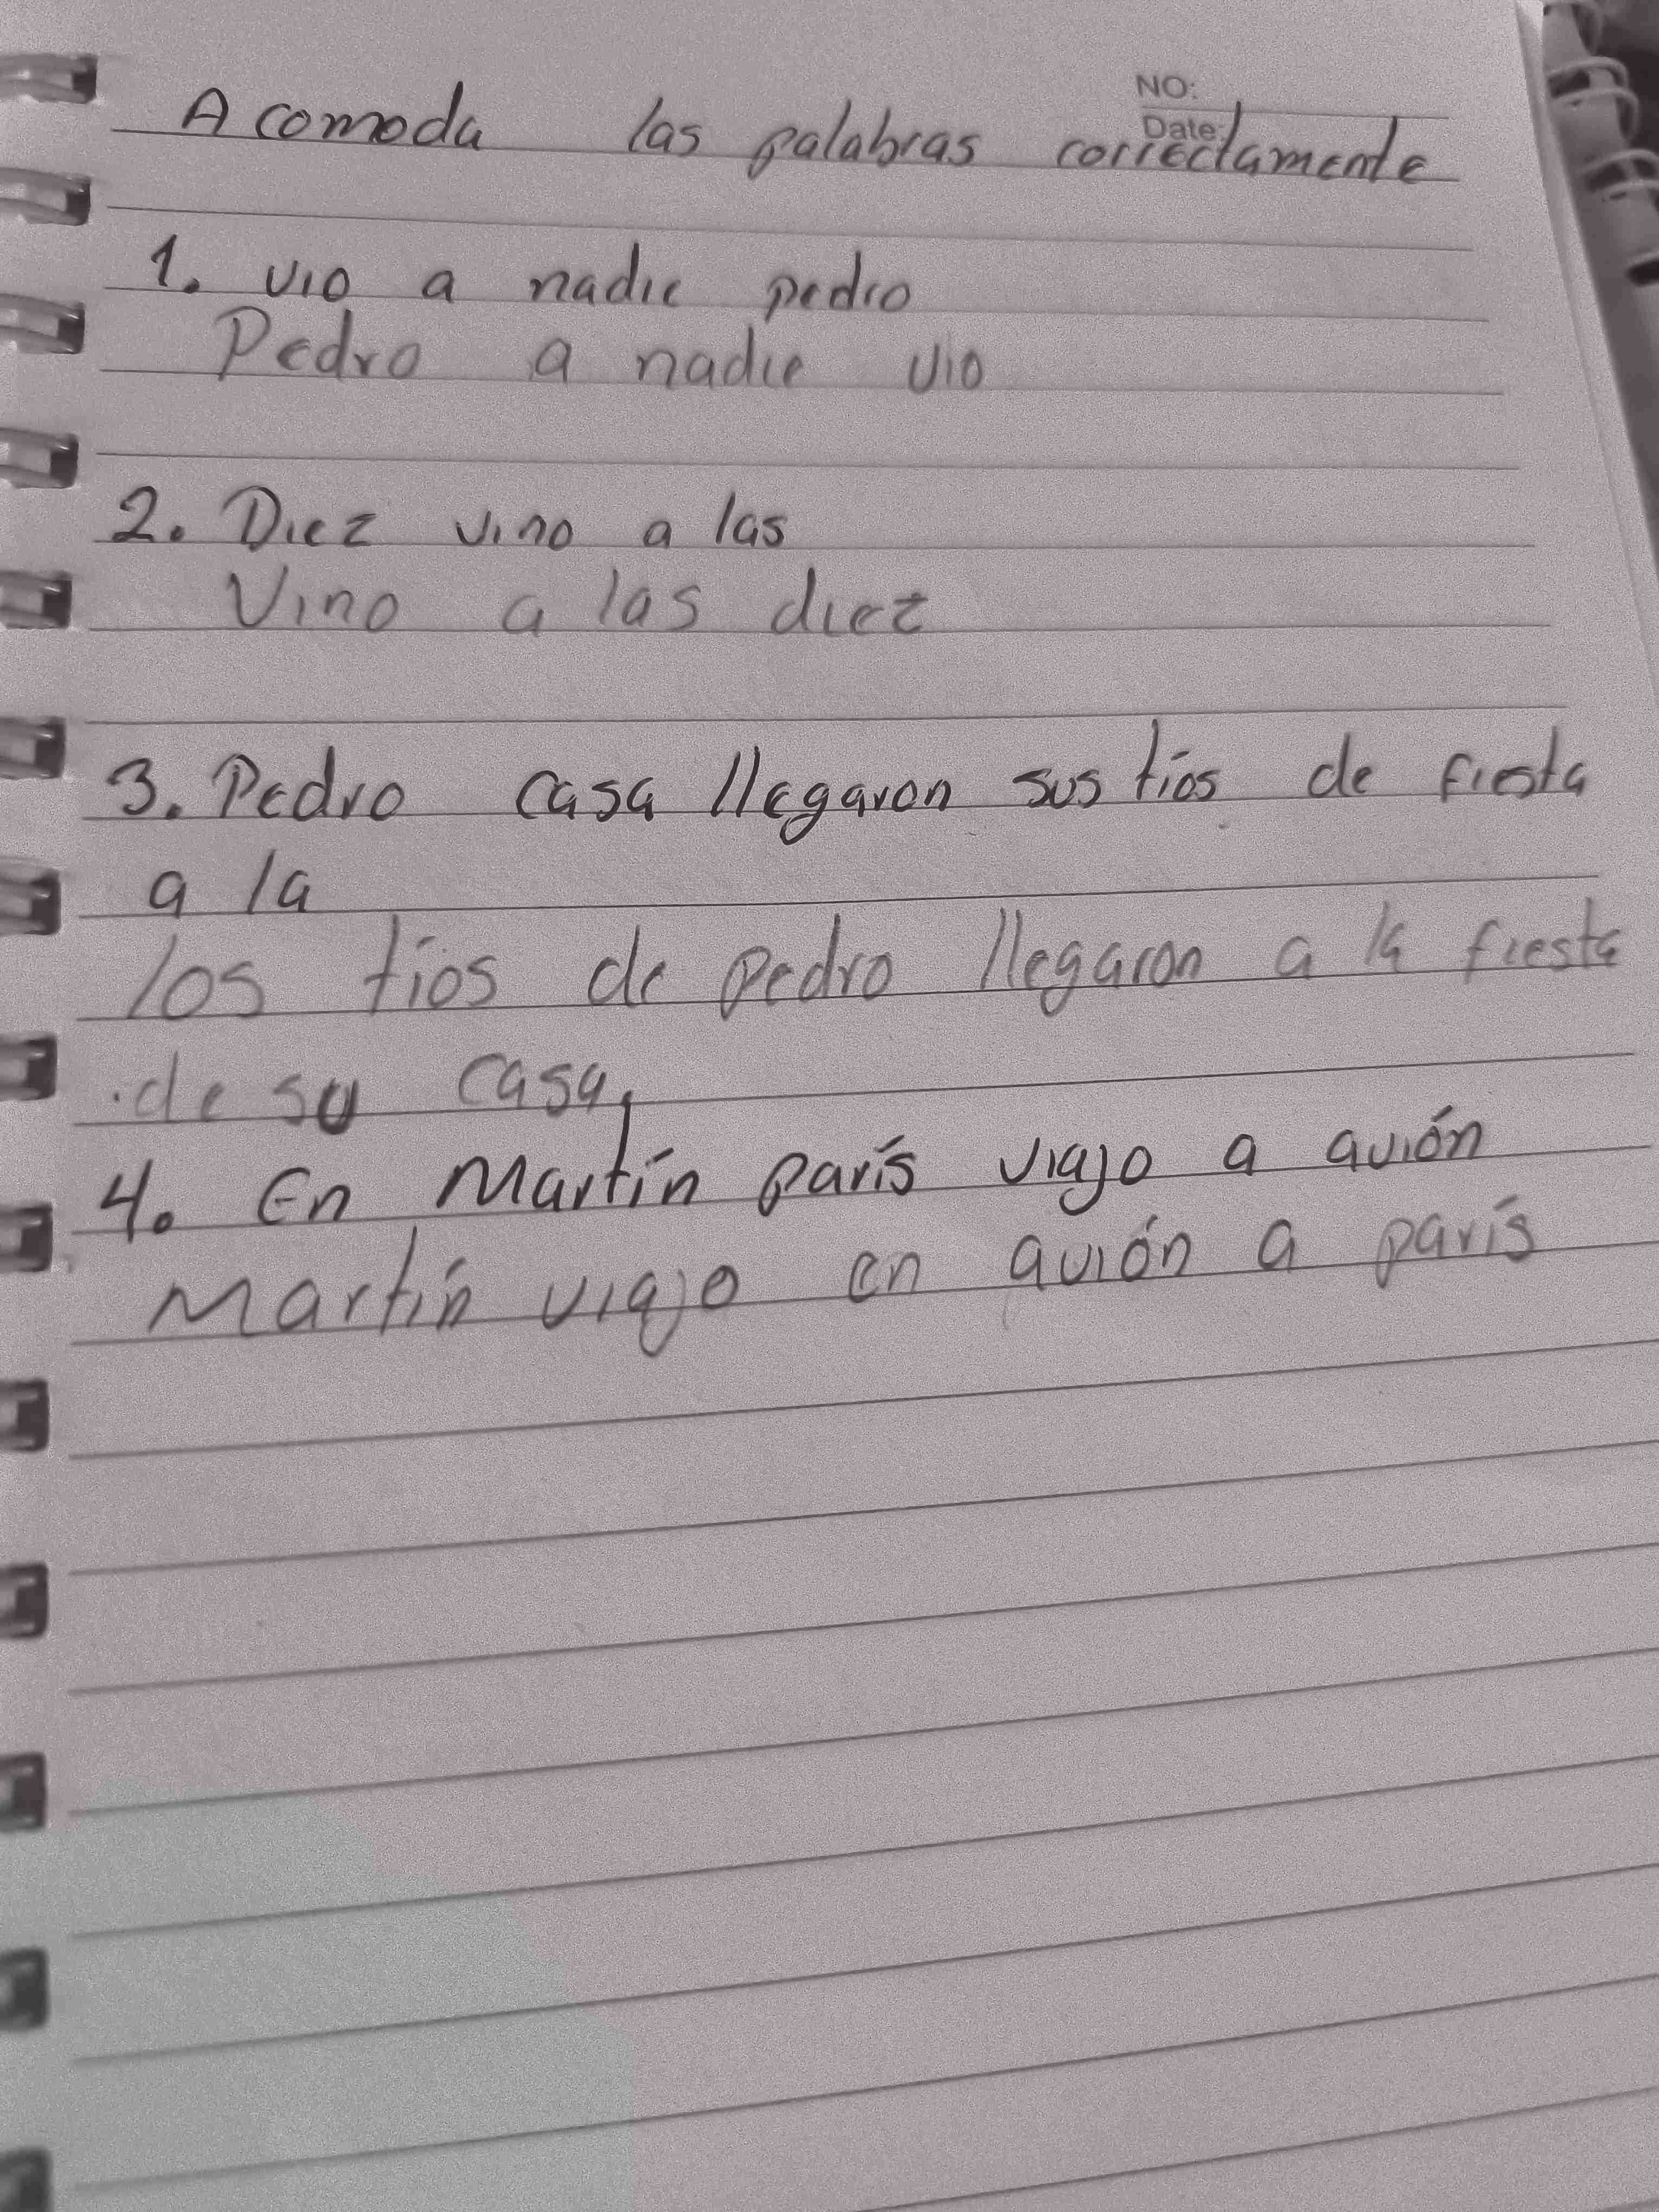 NO:
Date:
Acomoda las palabras correctamente
1. vio a nadie pedro
Pedro a nadie vio
2. Diez vino a las
Vino a las diez
3. Pedro casa llegaron sus tíos de fiesta
a la
los tíos de pedro llegaron a la fiesta
de su casa.
4. En Martín parís viajo a avión
Martín viajo en avión a parís